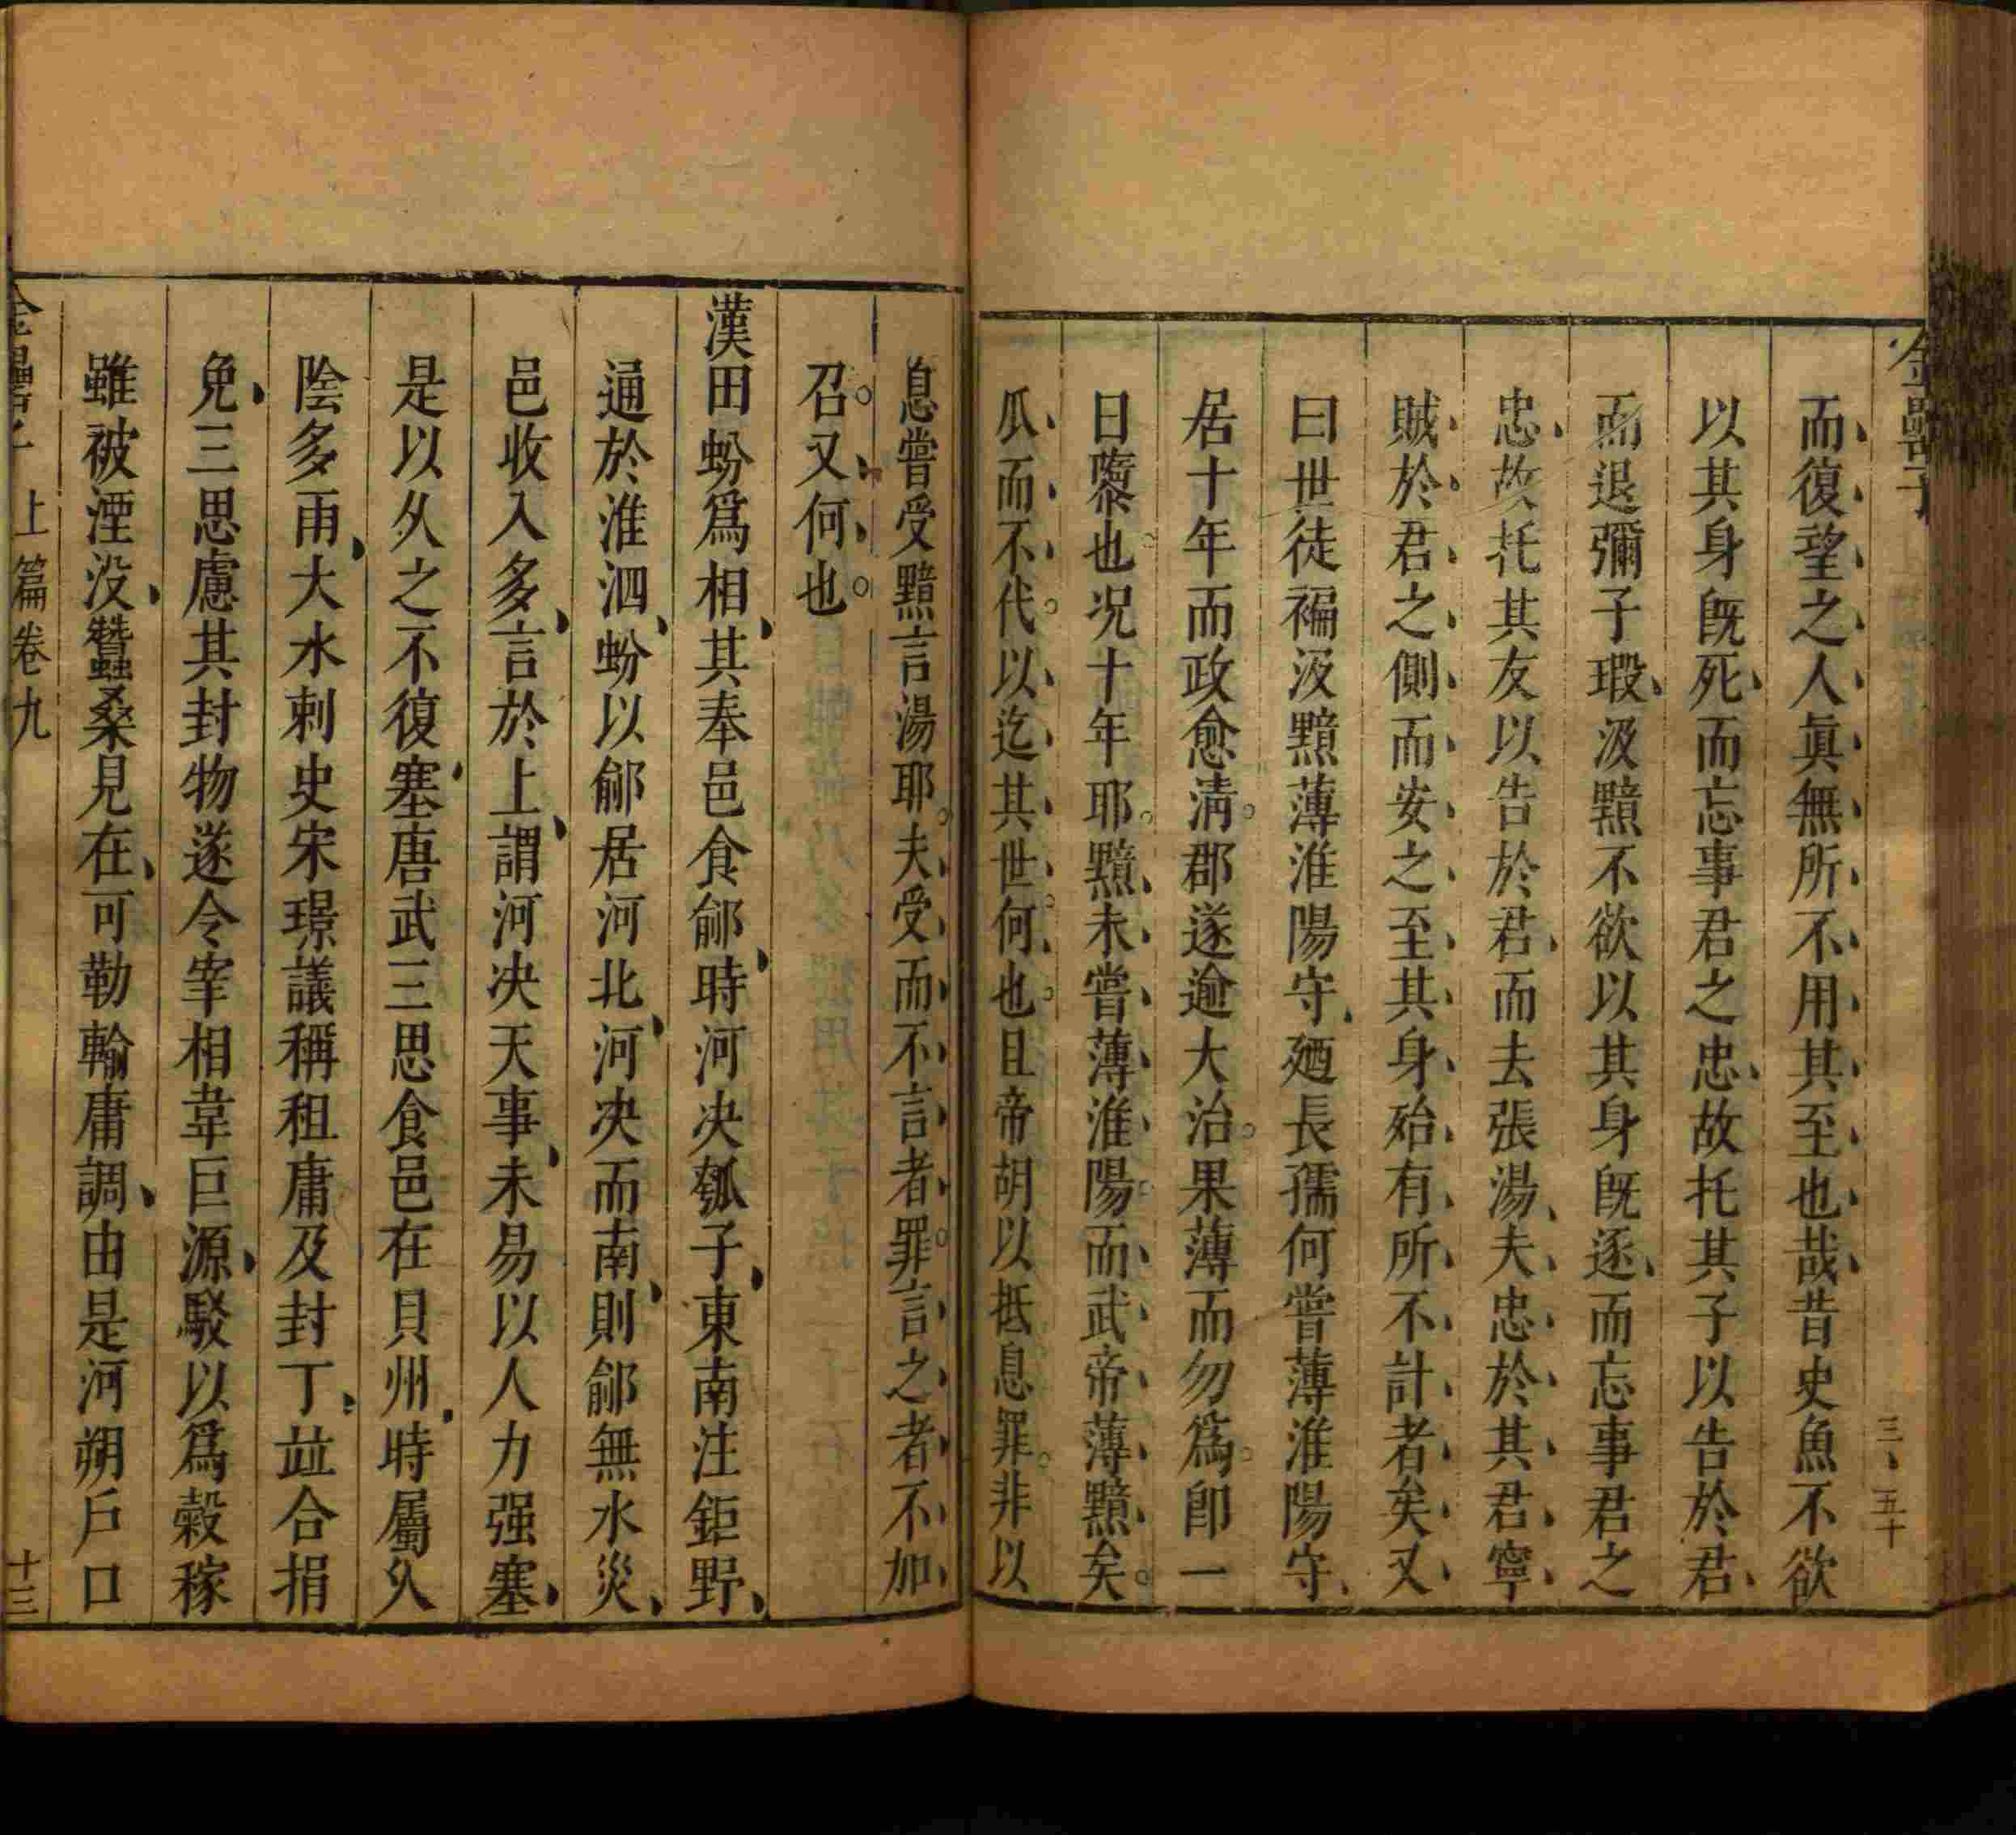 金罍子
三、五十
而復望之人眞無所不用其至也哉昔史魚不欲
以其身旣死而忘事君之忠故托其子以告於君
而退彌子瑕汲黯不欲以其身旣逐而忘事君之
忠故托其友以告於君而去張湯夫忠於其君寧
賊於君之側而安之至其身殆有所不計者矣又
曰世徒褊汲黯薄淮陽守廼長孺何嘗薄淮陽守
居十年而政愈淸郡遂逾大治果薄而勿爲卽一
日隳也况十年耶黯未嘗薄淮陽而武帝薄黯矣
瓜而不代以迄其世何也且帝胡以抵息罪非以
息嘗受黯言湯耶夫受而不言者罪言之者不加
召又何也
漢田蚡爲相其奉邑食鄃時河决瓠子東南注鉅野
通於淮泗蚡以鄃居河北河决而南則鄃無水災
邑收入多言於上謂河决天事未易以人力强塞
是以久之不復塞唐武三思食邑在貝州時屬久
陰多雨大水刺史宋璟議稱租庸及封丁竝合捐
免三思慮其封物遂令宰相韋巨源駁以爲穀稼
雖被湮没蠶桑見在可勒輸庸調由是河朔戶口
金罍子 上篇卷九 十三